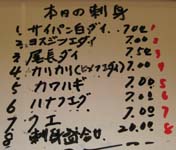 本日の刺身
1. サイパン白ダイ 7.00 1
2. ヨスジフエダイ 7.00 2
3. 尾長ダイ 7.50 3
4. カリカリ(ヒメフエダイ) 7.00 4
5 カワハギ 7.00 5
6 ハナフエダイ 7.00 6
7 クエ 7.00 7
8 刺身盛合せ 20.00 8